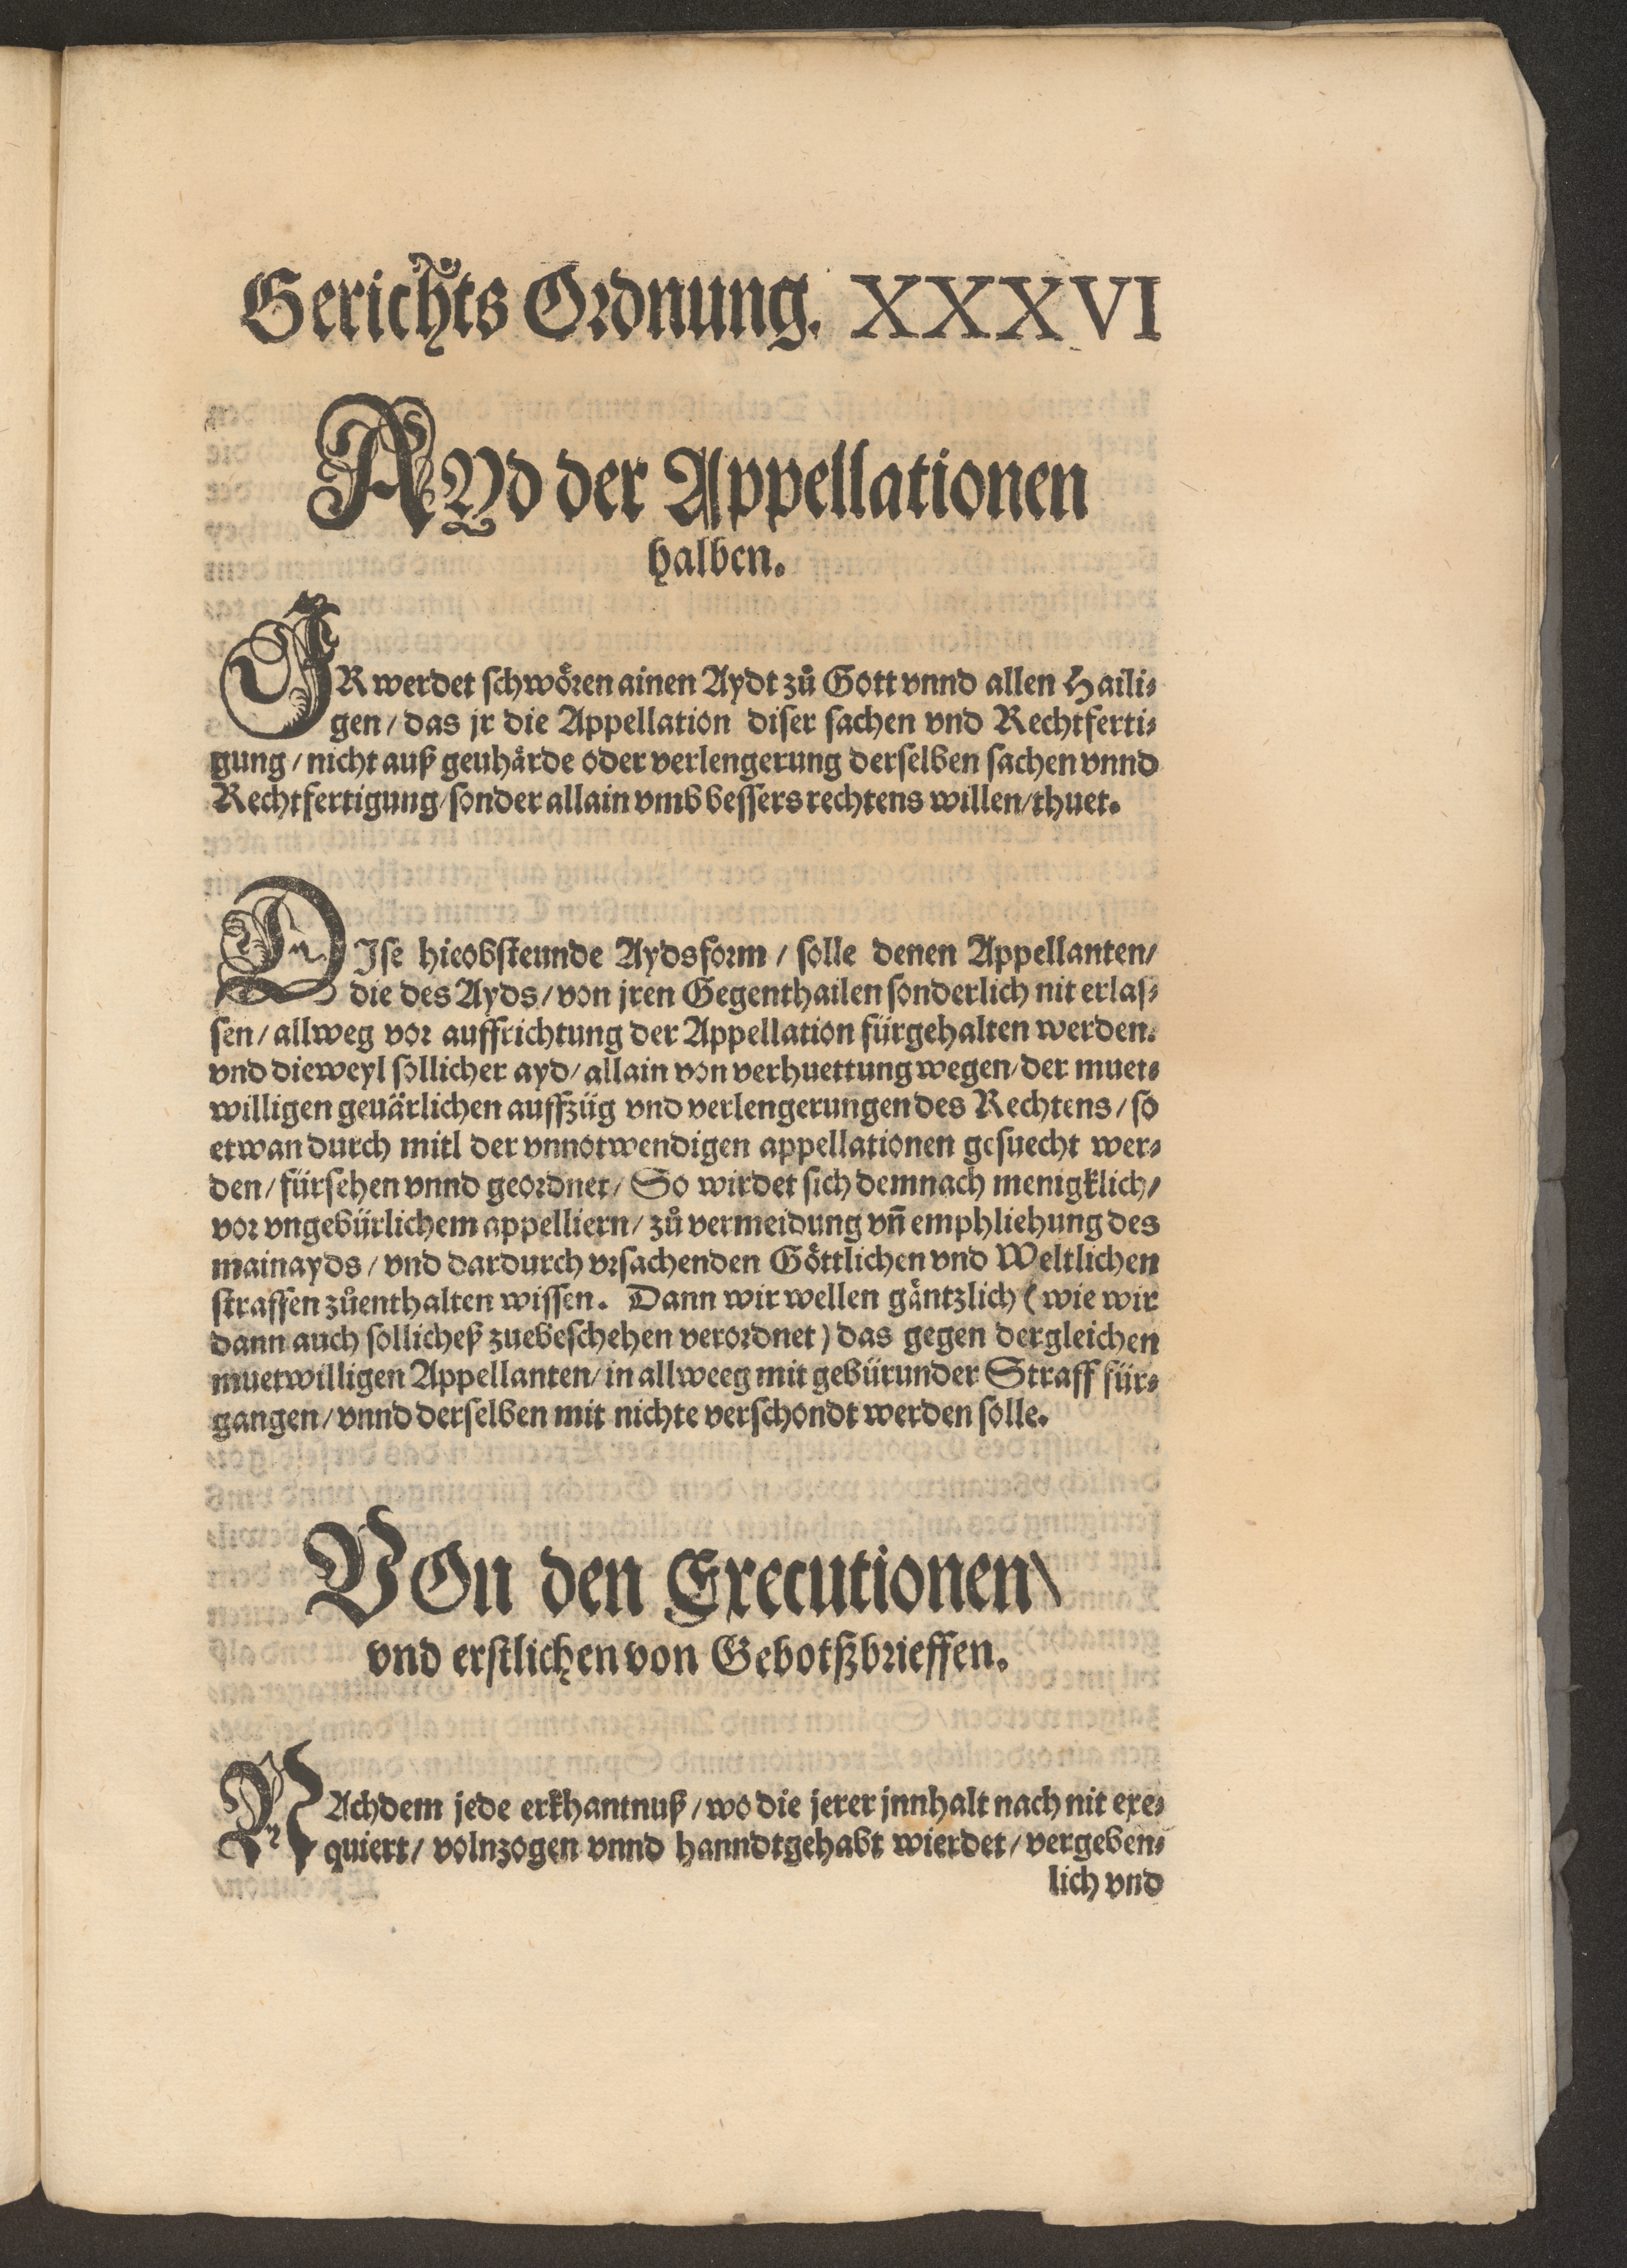 Gerichts Ordnung. XXXVI
AYd der Appellationen
halben.
IR werdet schwören ainen Aydt zů Gott vnnd allen Haili⸗
gen / das jr die Appellation diser sachen vnd Rechtferti⸗
gung / nicht auß geuhärde oder verlengerung derselben sachen vnnd
Rechtfertigung / sonder allain vmb bessers rechtens willen / thuet.
DIse hieobsteunde Aydsform / solle denen Appellanten /
die des Ayds / von jren Gegenthailen sonderlich nit erlas⸗
sen / allweg vor auffrichtung der Appellation fürgehalten werden.
vnd dieweyl sollicher ayd / allain von verhuettung wegen / der muet⸗
willigen geuärlichen auffzüg vnd verlengerungen des Rechtens / so
etwan durch mitl der vnnotwendigen appellationen gesuecht wer⸗
den / fürsehen vnnd geordnet / So wirdet sich demnach menigklich /
vor vngebürlichem appelliern / zů vermeidung vn̄ emphliehung des
mainayds / vnd dardurch vrsachenden Göttlichen vnd Weltlichen
straffen zůenthalten wissen. Dann wir wellen gäntzlich (wie wir
dann auch sollicheß zuebeschehen verordnet) das gegen dergleichen
muetwilligen Appellanten / in allweeg mit gebürunder Straff für⸗
gangen / vnnd derselben mit nichte verschondt werden solle.
VOn den Executionen /
vnd erstlichen von Gebotßbrieffen.
NAchdem jede erkhantnuß / wo die jerer jnnhalt nach nit exe⸗
quiert / volnzogen vnnd hanndtgehabt wierdet / vergeben⸗
lich vnd